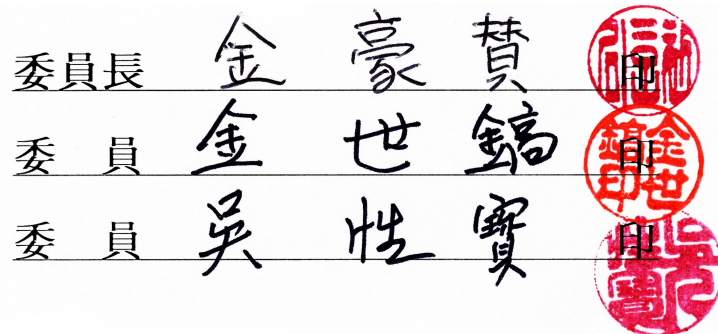 委員長 金豪贊 印
委員 金世鎬 印
委員 吳性寶 印